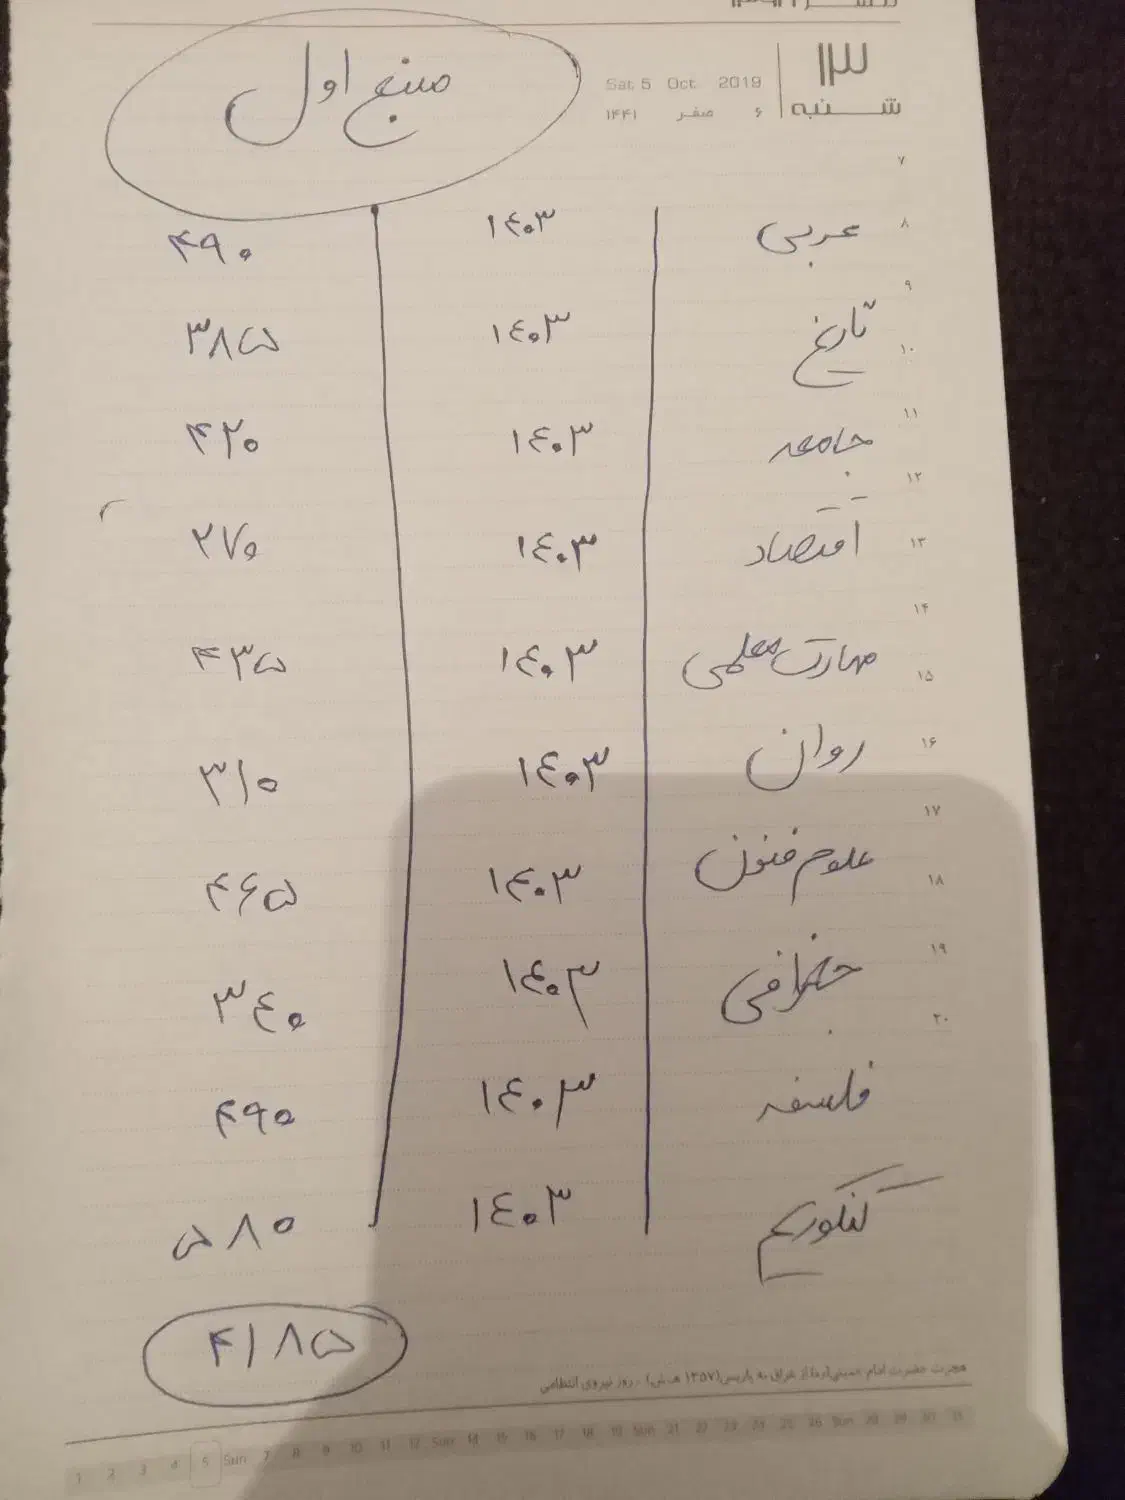 ۱۳
شنبه
Sat 5 Oct 2019
۶ صفر ۱۴۴۱
منبع اول
۷
۸
عربی ۱۴۰۳ ۴۹۰
۹
تاریخ ۱۴۰۳ ۳۸۵
۱۰
۱۱
جامعه ۱۴۰۳ ۴۲۰
۱۲
اقتصاد ۱۴۰۳ ۲۷۰
۱۳
۱۴
مهارت معلمی ۱۴۰۳ ۴۳۵
۱۵
روان ۱۴۰۳ ۳۱۰
۱۶
۱۷
علوم فنون ۱۴۰۳ ۴۶۵
۱۸
۱۹
جغرافی ۱۴۰۳ ۳۴۰
۲۰
فلسفه ۱۴۰۳ ۴۹۰
کنکوریم ۱۴۰۳ ۵۸۰
۴۱۸۵
هجرت حضرت امام خمینی(ره) از عراق به پاریس(۱۳۵۷ ه.ش) - روز نیروی انتظامی
1 2 3 4 5 Sun 7 8 9 10 11 12 Sun 14 15 16 17 18 19 Sun 21 22 23 24 25 26 Sun 28 29 30 31